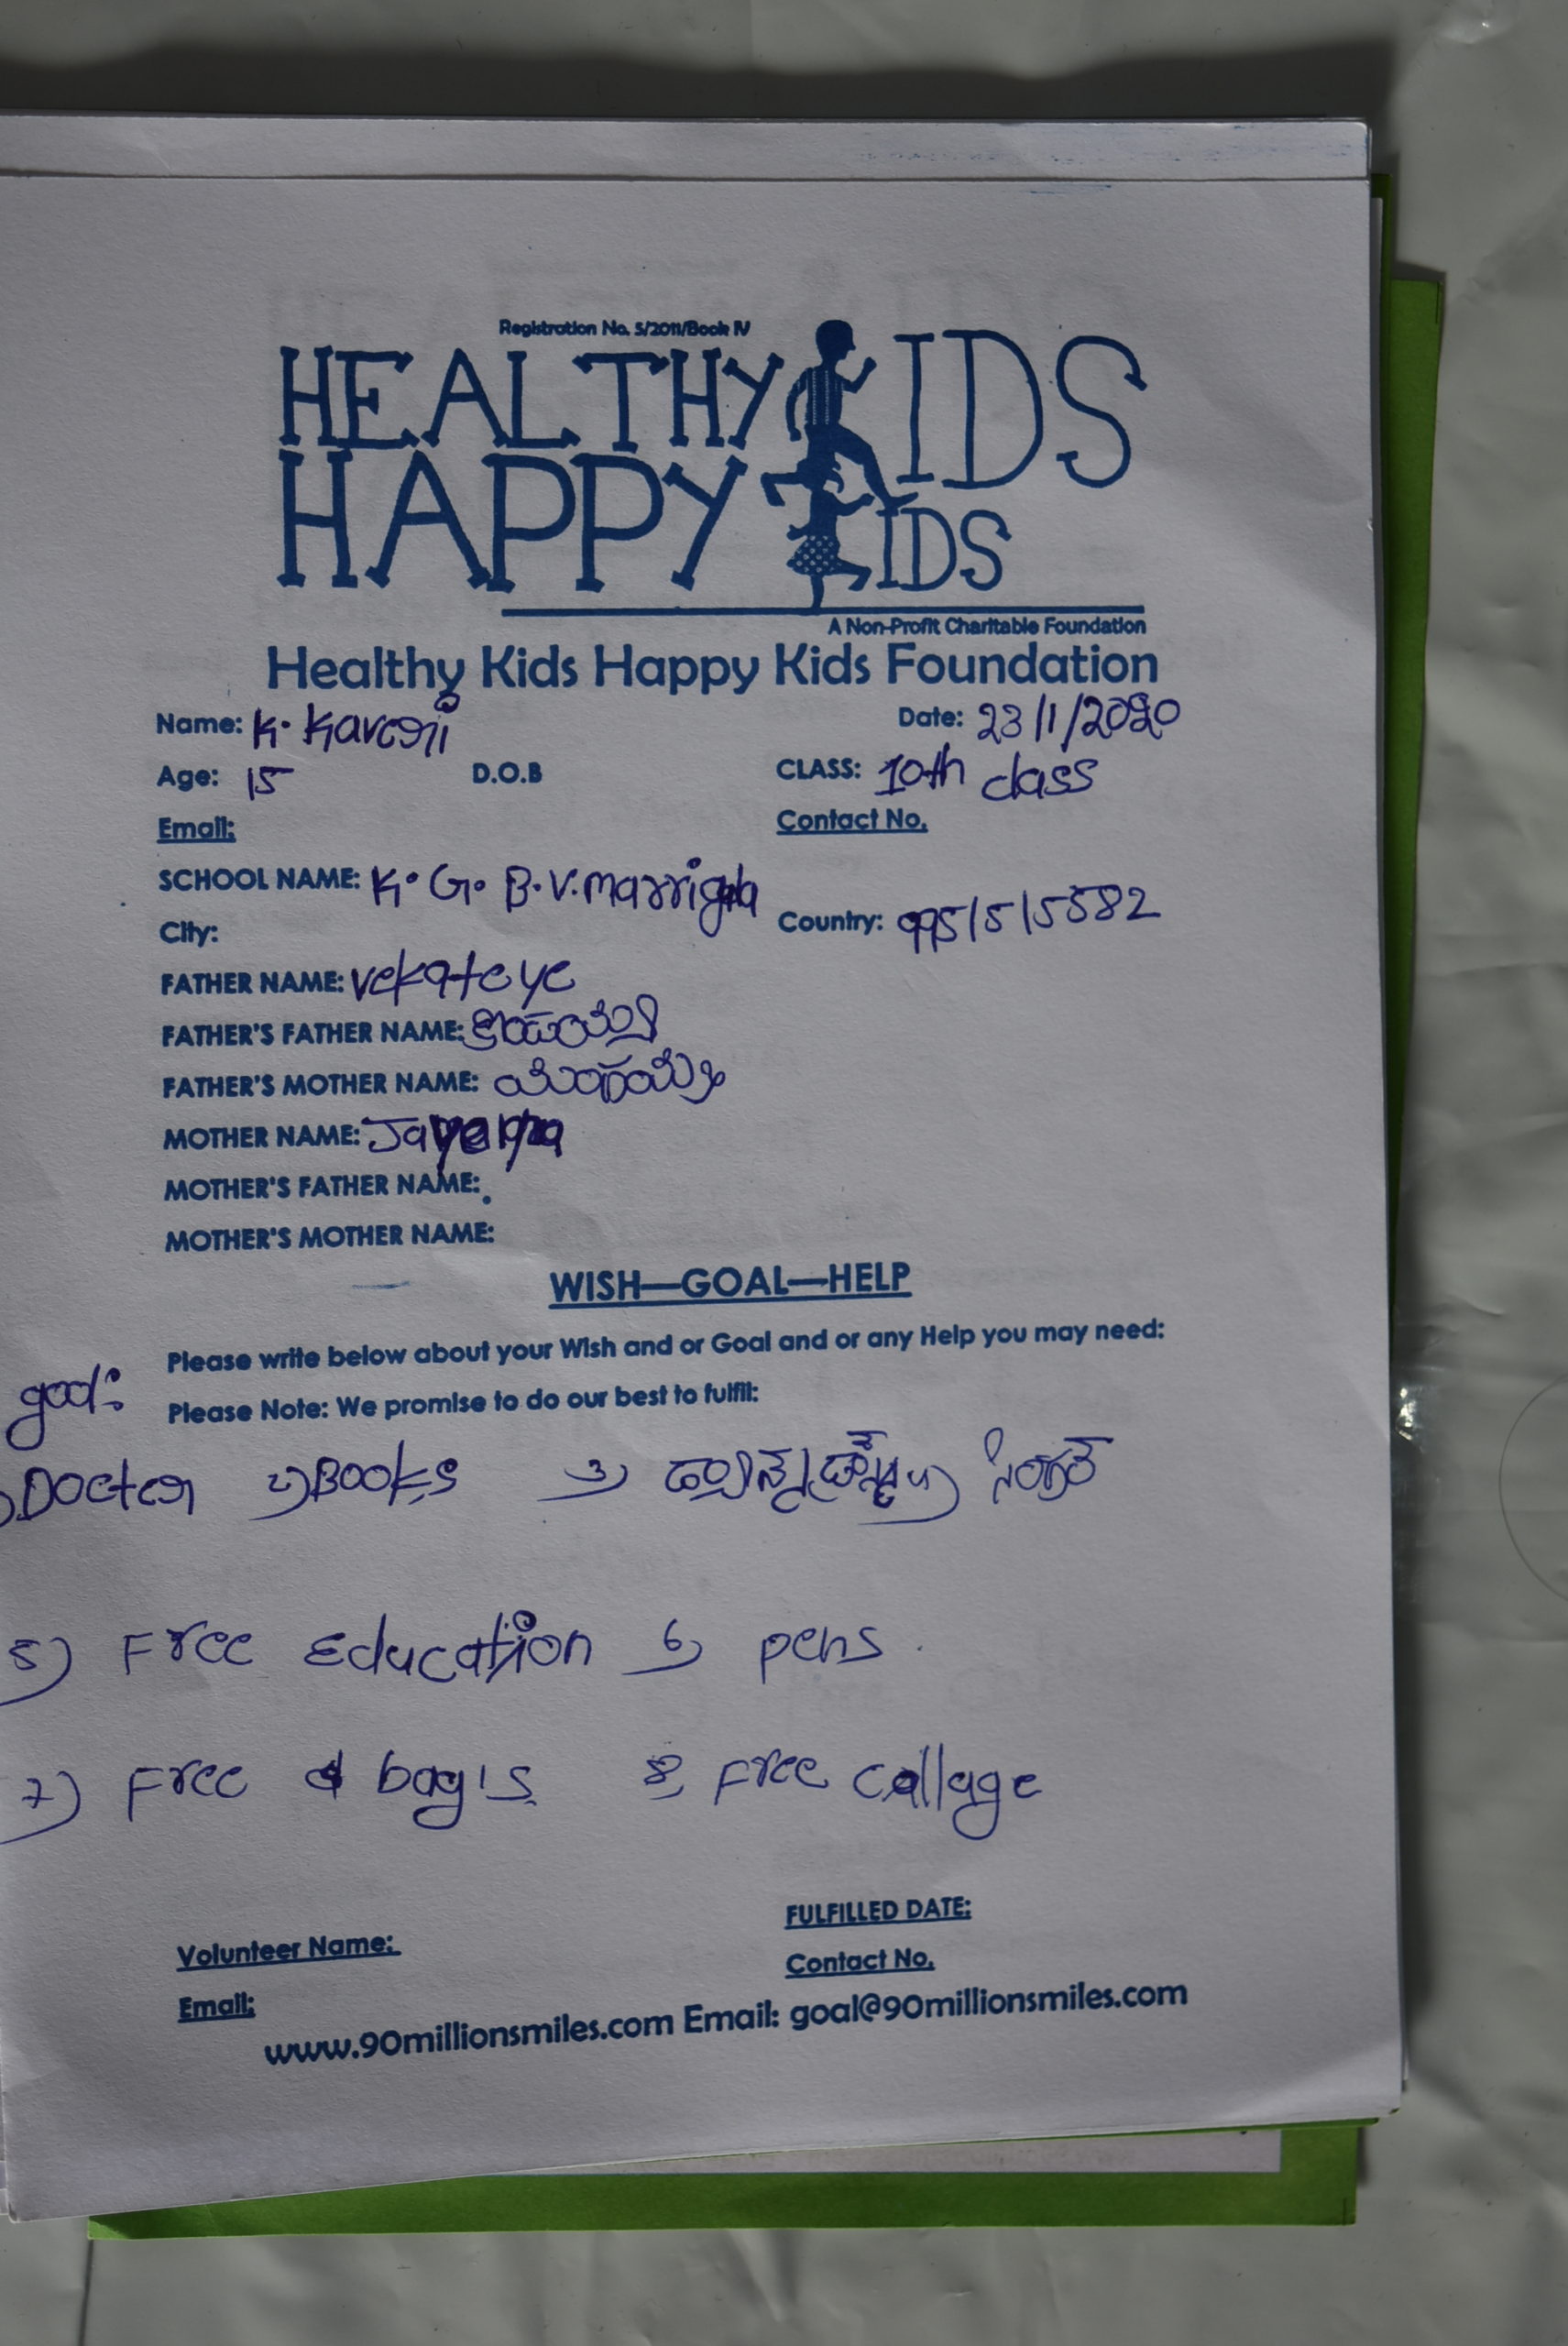 Registration No. 5/2011/Book IV
HEALTHY KIDS
HAPPY KIDS
A Non-Profit Charitable Foundation
Healthy Kids Happy Kids Foundation
Name: K. Kaveri Date: 23/1/2020
Age: 15 D.O.B CLASS: 10th class
Email: Contact No.
SCHOOL NAME: K. G. B. V. marriguda
City: Country: 9951515582
FATHER NAME: vekateye
FATHER'S FATHER NAME:
FATHER'S MOTHER NAME:
MOTHER NAME:
MOTHER'S FATHER NAME:
MOTHER'S MOTHER NAME:
WISH—GOAL—HELP
Please write below about your Wish and or Goal and or any Help you may need:
goal: Please Note: We promise to do our best to fulfil:
Docter 2) Books 3) 4)
5) Free Education 6) pens.
7) Free bag's 8) Free collage
FULFILLED DATE:
Volunteer Name: Contact No.
Email:
www.90millionsmiles.com Email: goal@90millionsmiles.com